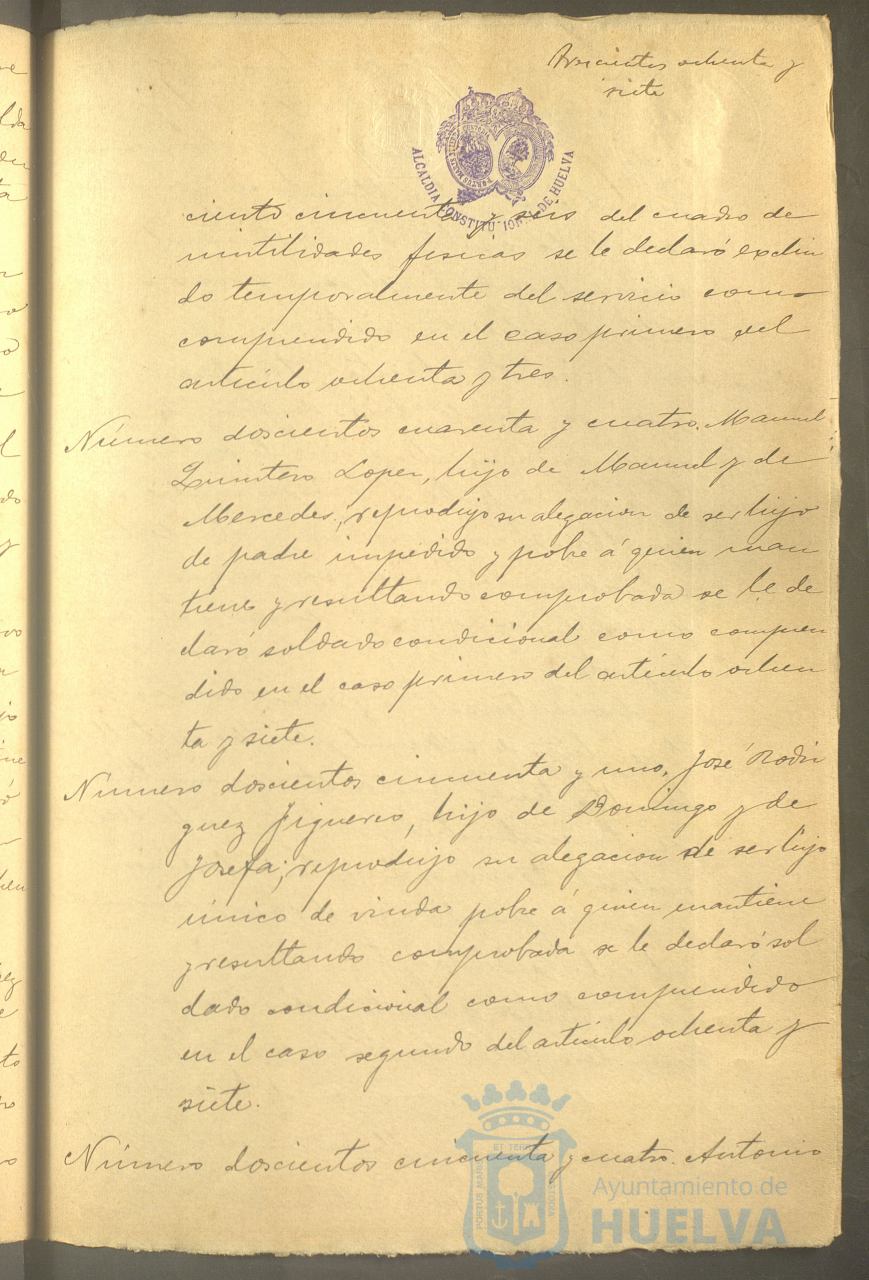 Doscientos ochenta y
siete
ALCALDIA CONSTITUCIONAL DE HUELVA
ciento cincuenta y seis del cuadro de
inutilidades fisicas se le declaró exclui
do temporalmente del servicio como
comprendido en el caso primero del
artículo ochenta y tres.
Número doscientos cuarenta y cuatro. Manuel
Quintero Lopez, hijo de Manuel y de
Mercedes, reprodujo su alegacion de ser hijo
de padre impedido y pobre á quien man
tiene y resultando comprobada se le de
claró soldado condicional como compren
dido en el caso primero del artículo ochen
ta y siete.
Número doscientos cincuenta y uno, José Rodri
guez Figuereo, hijo de Domingo y de
Josefa; reprodujo su alegacion de ser hijo
único de viuda pobre á quien mantiene
y resultando comprobada se le declaró sol
dado condicional como comprendido
en el caso segundo del artículo ochenta y
siete.
Número doscientos cincuenta y cuatro. Antonio
Ayuntamiento de
HUELVA